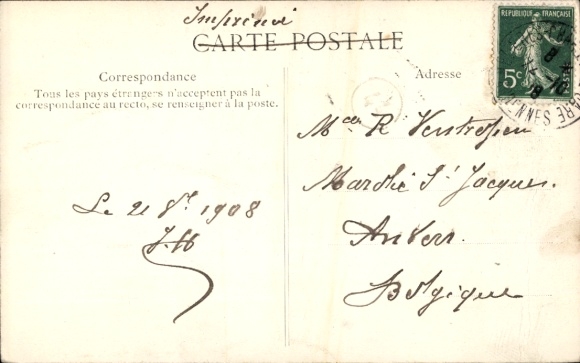 Imprimé
CARTE POSTALE
Correspondance
Tous les pays étrangers n'acceptent pas la
correspondance au recto, se renseigner à la poste.
Le 21 8bre 1908
Adresse
REPUBLIQUE FRANÇAISE
5c
R Verstrepen
Marché St Jacques.
Anvers.
Belgique